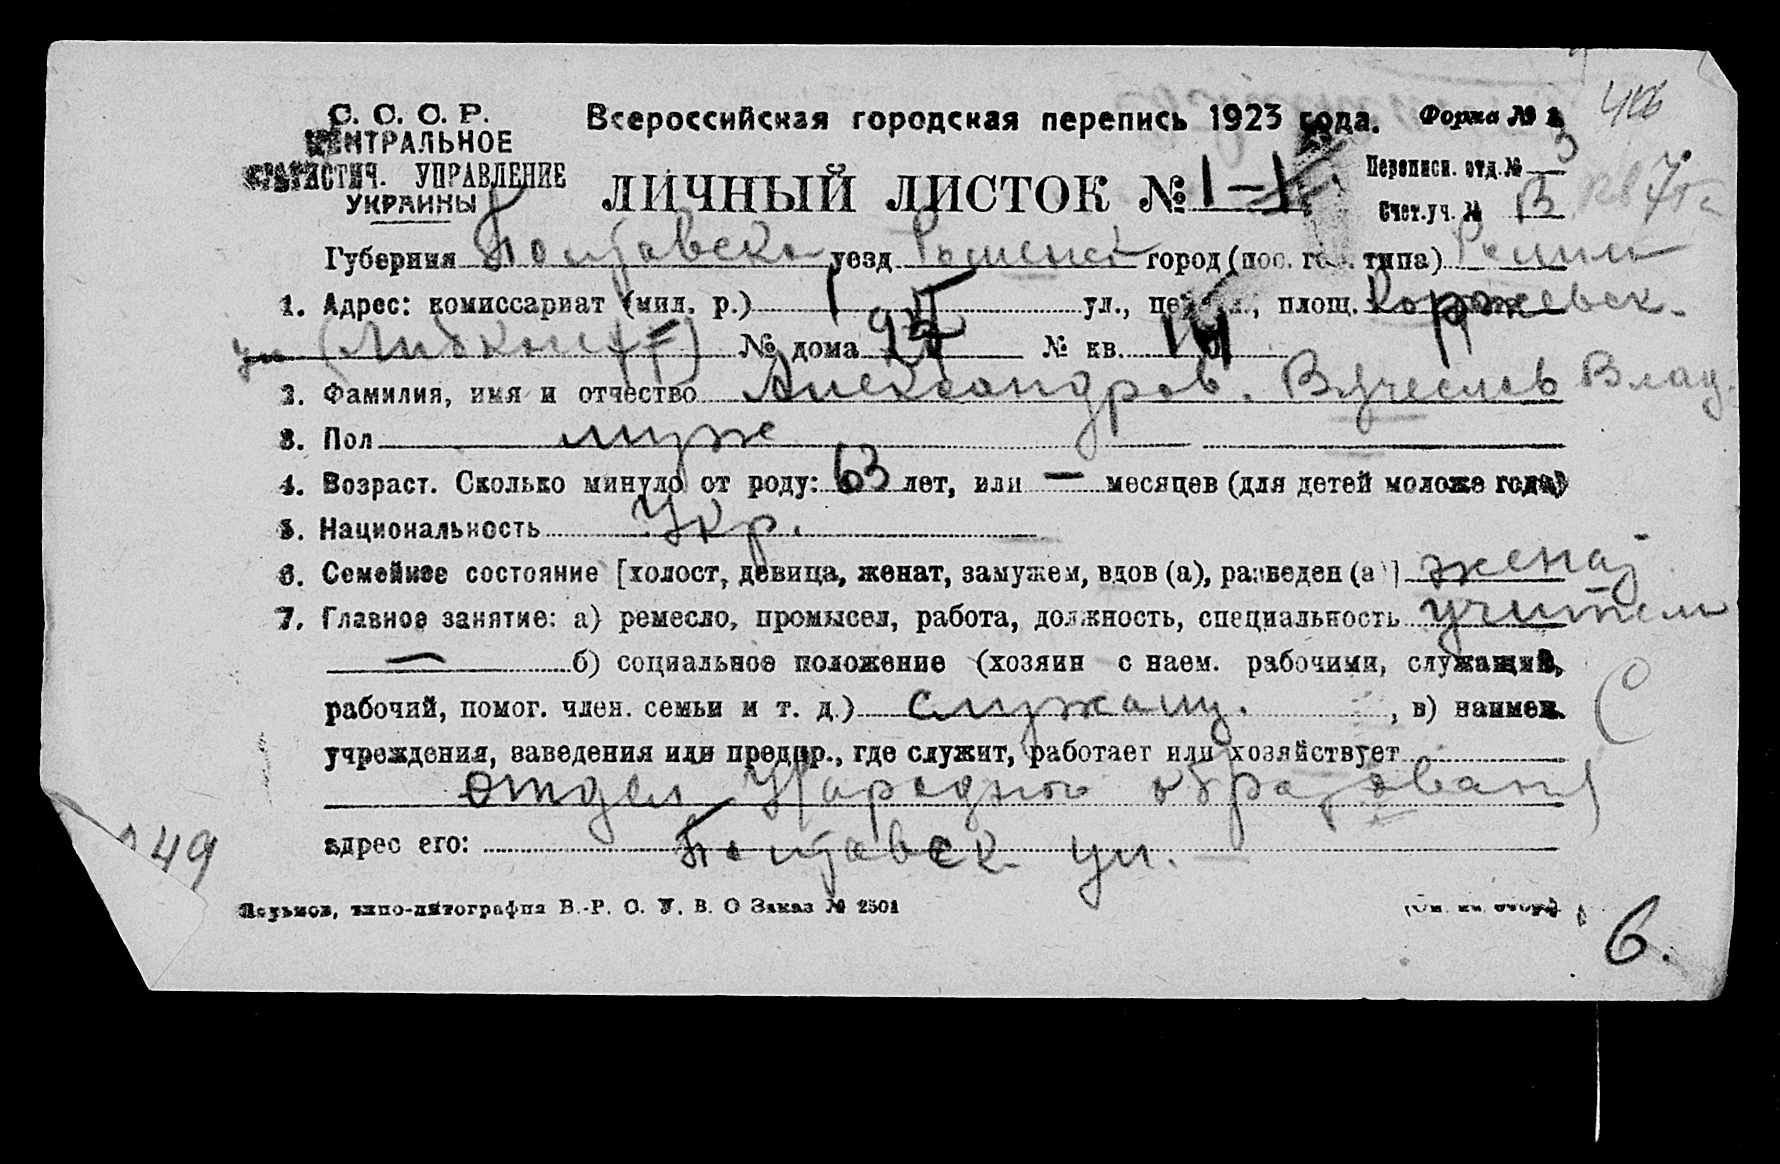 С. С. С. Р.
ЦЕНТРАЛЬНОЕ
СТАТИСТИЧ. УПРАВЛЕНИЕ
УКРАИНЫ
Всероссийская городская перепись 1923 года.
Форма № 1
ЛИЧНЫЙ ЛИСТОК № 1-1
Переписн. отд. № 3
Счет. уч. № В
Губерния Полтавска уезд Роменск город (пос. гор. типа) Ромны
1. Адрес: комиссариат (мил. р.) 1 ул., пер. ул., площ. Коржевск.
ул (Либкнехта) № дома № кв.
2. Фамилия, имя и отчество Александров. Вячеслав Влад.
3. Пол муж
4. Возраст. Сколько минуло от роду: 63 лет, или — месяцев (для детей моложе года)
5. Национальность Укр.
6. Семейное состояние [холост, девица, женат, замужем, вдов (а), разведен (а)] женат
7. Главное занятие: а) ремесло, промысел, работа, должность, специальность учитель
— б) социальное положение (хозяин с наем. рабочими, служащий,
рабочий, помог. член. семьи и т. д.) служащ. , в) наимен.
учреждения, заведения или предпр., где служит, работает или хозяйствует
отдел Народного образования
адрес его: Полтавск ул.
149
типо-литография В.-Р. О. У. В. О Заказ № 2501
(См. на обор.)
6.